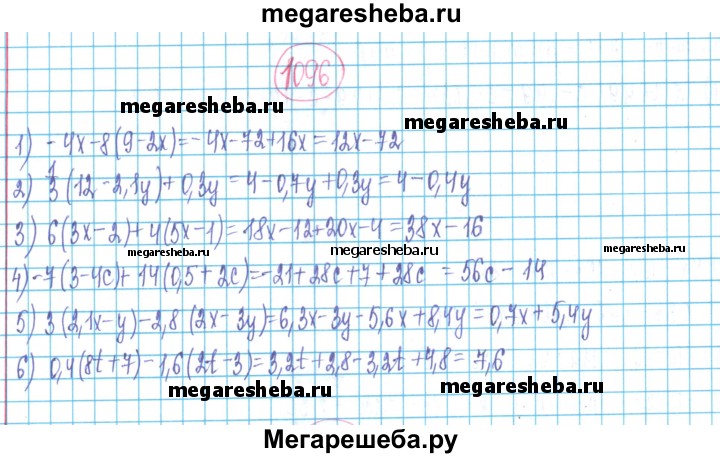 megaresheba.ru
1096
megaresheba.ru
megaresheba.ru
1) -4x-8(9-2x)=-4x-72+16x=12x-72
2) 1/3(12-2,1y)+0,3y=4-0,7y+0,3y=4-0,4y
3) 6(3x-2)+4(5x-1)=18x-12+20x-4=38x-16
megaresheba.ru megaresheba.ru megaresheba.ru
4) -7(3-4c)+14(0,5+2c)=-21+28c+7+28c=56c-14
5) 3(2,1x-y)-2,8(2x-3y)=6,3x-3y-5,6x+8,4y=0,7x+5,4y
6) 0,4(8t+7)-1,6(2t-3)=3,2t+2,8-3,2t+4,8=7,6
megaresheba.ru megaresheba.ru
Мегарешеба.ру